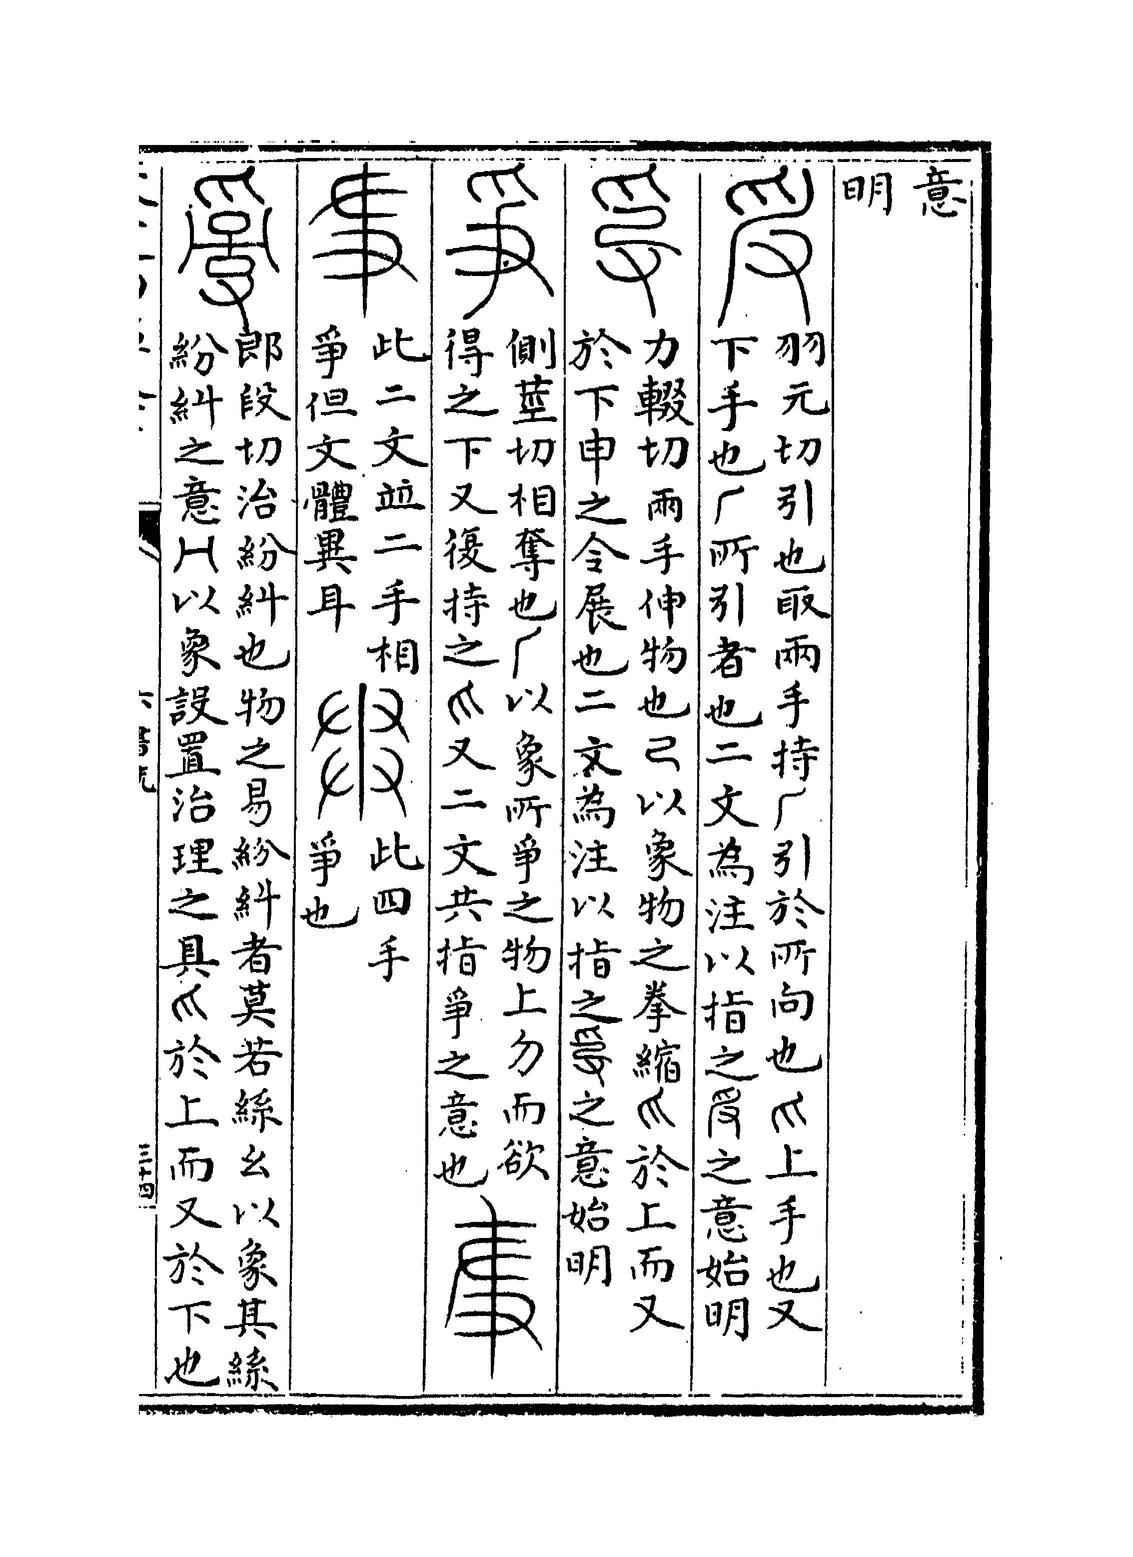 意
明
羽元切引也取兩手持厂引於所向也爪上手也又
下手也厂所引者也二文為注以指之爰之意始明
力輟切兩手伸物也己以象物之拳縮爪於上而又
於下申之令展也二文為注以指之之意始明
側莖切相奪也厂以象所爭之物上勿而欲
得之下又復持之爪又二文共指爭之意也
此二文並二手相
爭但文體異耳
此四手
爭也
郎段切治紛糾也物之易紛糾者莫若絲幺以象其絲
紛糾之意以象設置治理之具爪於上而又於下也
六書統
三十四